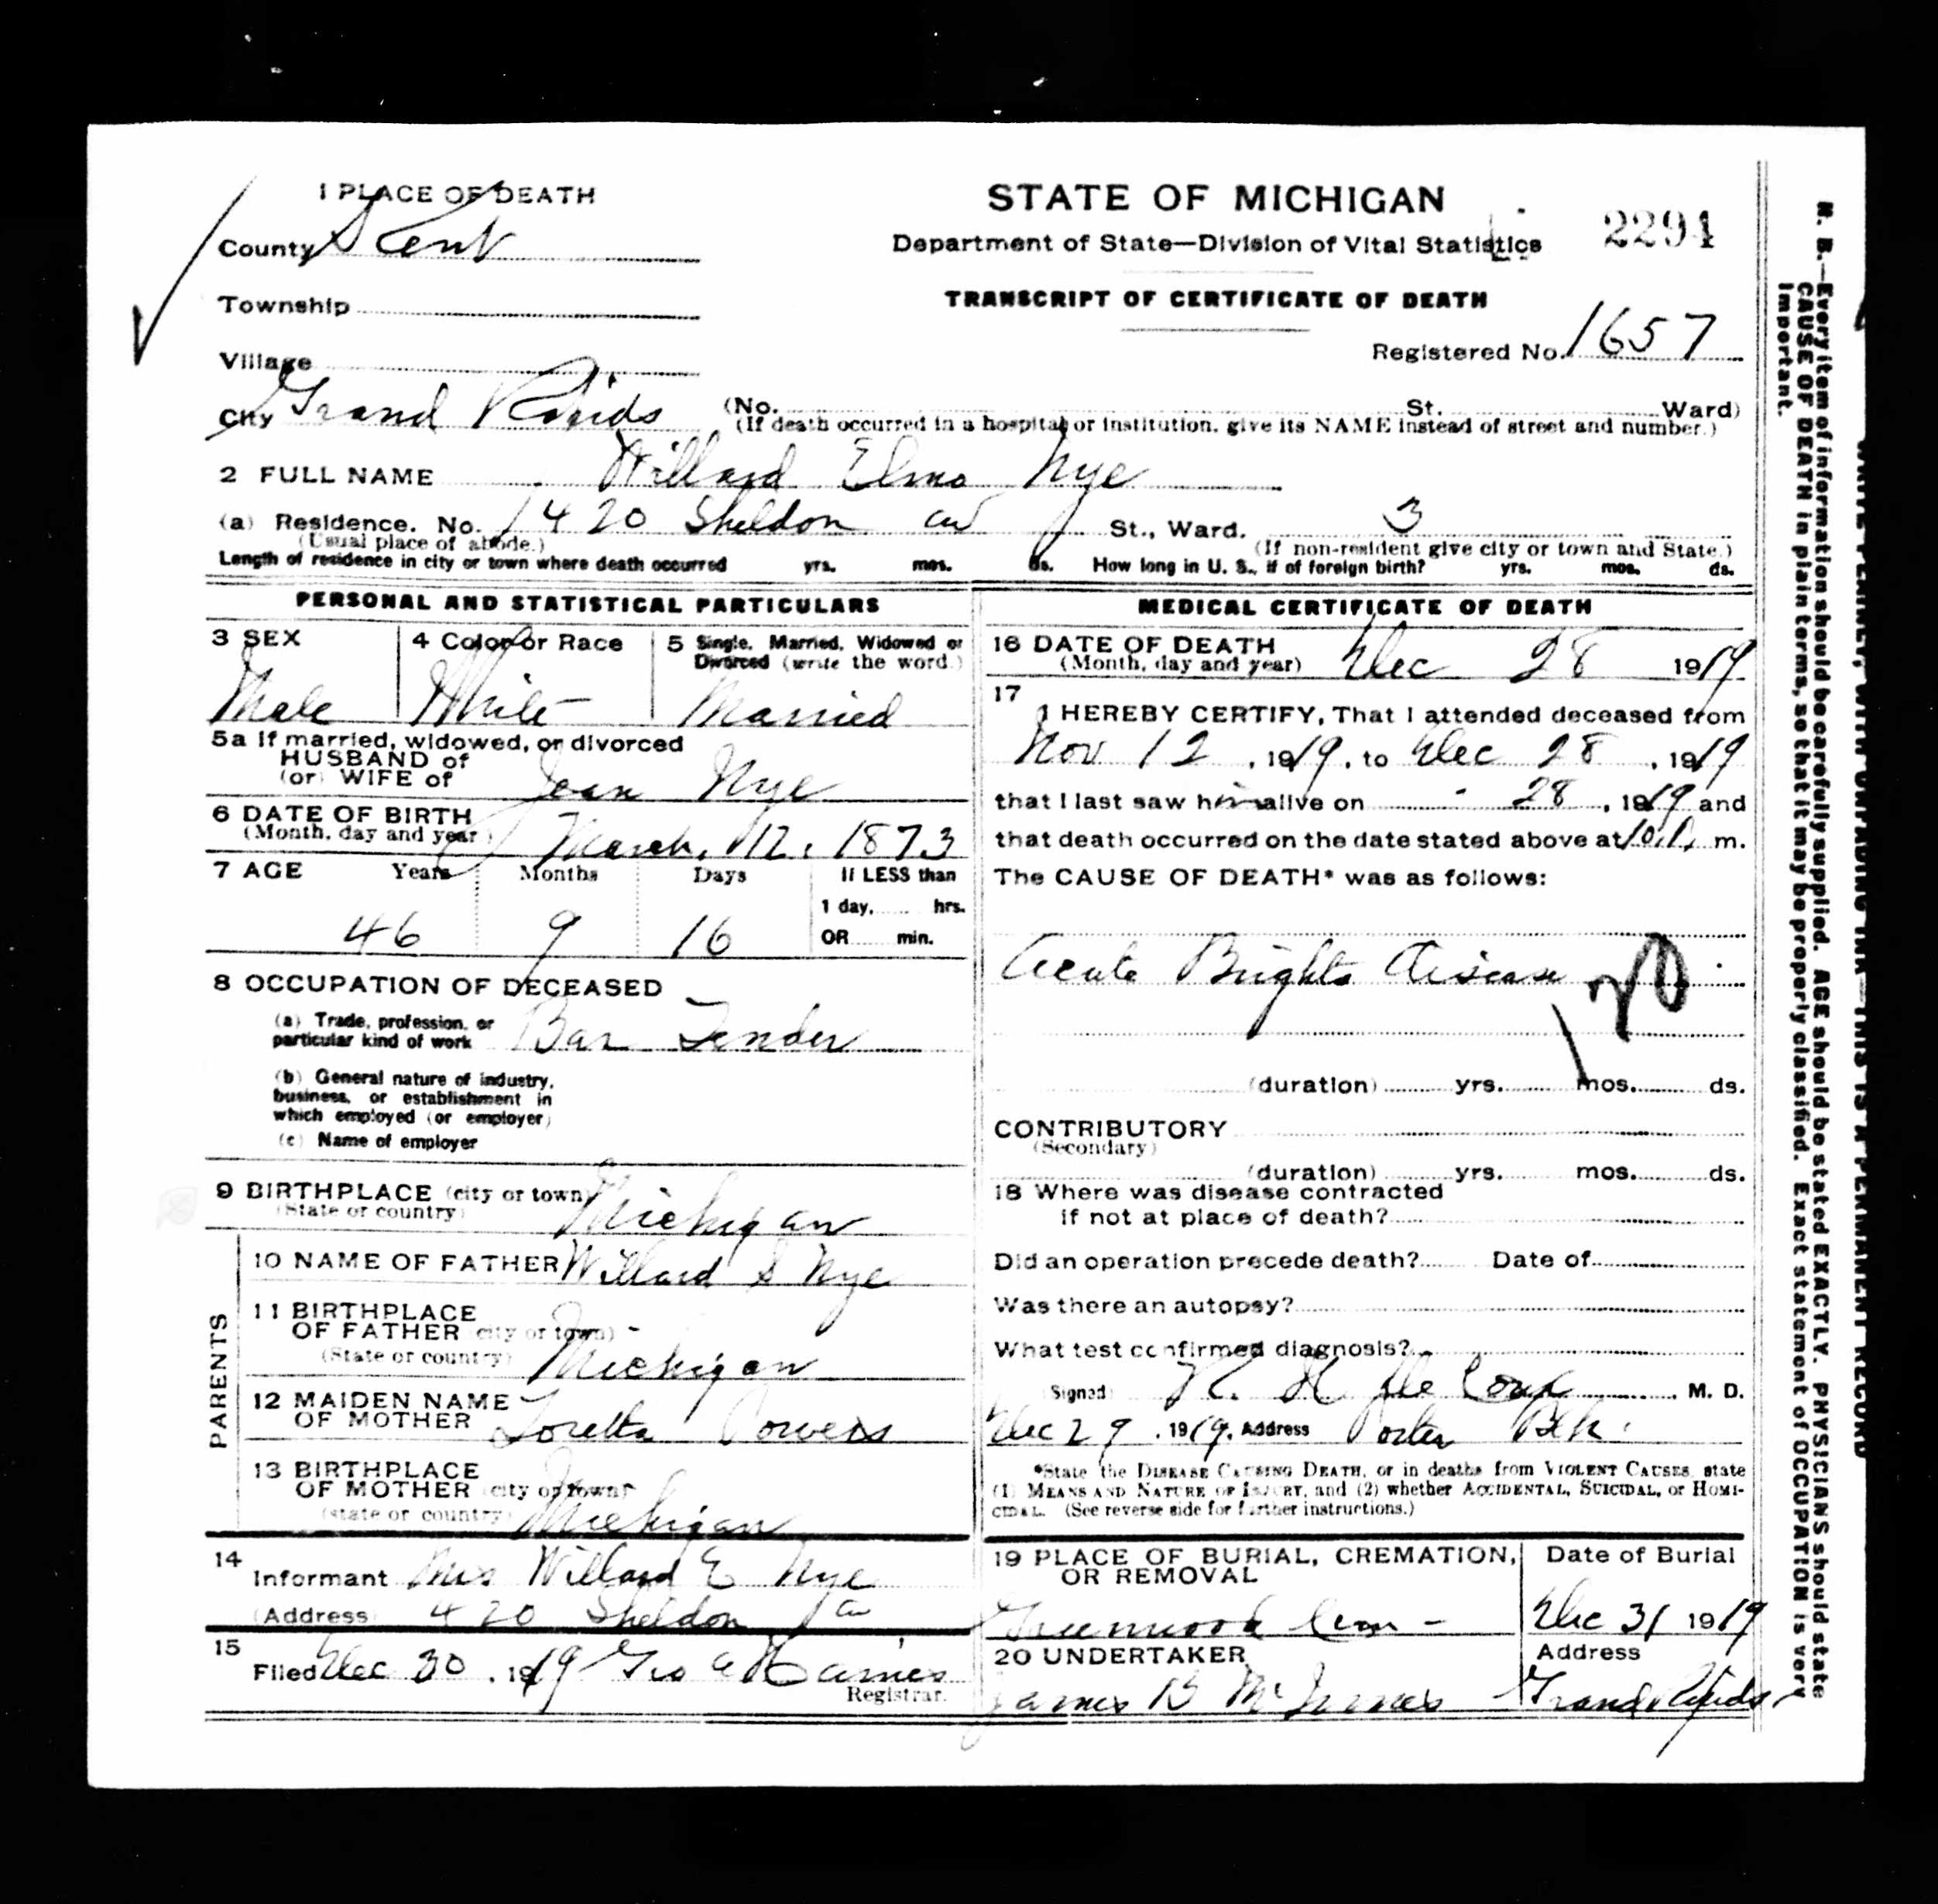 1 PLACE OF DEATH
County Kent
Township
Village
City Grand Rapids
STATE OF MICHIGAN
Department of State—Division of Vital Statistics
2294
TRANSCRIPT OF CERTIFICATE OF DEATH
Registered No. 1657
(No. St. Ward)
(If death occurred in a hospital or institution, give its NAME instead of street and number.)
2 FULL NAME Willard Elmo Nye
(a) Residence. No. 1420 Sheldon av St., Ward. 3
(Usual place of abode.) (If non-resident give city or town and State.)
Length of residence in city or town where death occurred yrs. mos. ds. How long in U. S., if of foreign birth? yrs. mos. ds.
PERSONAL AND STATISTICAL PARTICULARS
3 SEX
Male
4 Color or Race
White
5 Single, Married, Widowed or
Divorced (write the word.)
Married
5a If married, widowed, or divorced
HUSBAND of
(or) WIFE of Jean Nye
6 DATE OF BIRTH
(Month, day and year) March. 12. 1873
7 AGE Years Months Days If LESS than
1 day, hrs.
46 9 16 OR min.
8 OCCUPATION OF DECEASED
(a) Trade, profession, or
particular kind of work Bar Tender
(b) General nature of industry,
business, or establishment in
which employed (or employer)
(c) Name of employer
9 BIRTHPLACE (city or town)
(State or country) Michigan
PARENTS
10 NAME OF FATHER Willard S Nye
11 BIRTHPLACE
OF FATHER (city or town)
(State or country) Michigan
12 MAIDEN NAME
OF MOTHER Loretta Powers
13 BIRTHPLACE
OF MOTHER (city or town)
(state or country) Michigan
14
Informant Mrs Willard E Nye
(Address) 420 Sheldon av
15
Filed Dec 30, 1919 Geo a
Registrar.
MEDICAL CERTIFICATE OF DEATH
16 DATE OF DEATH
(Month, day and year) Dec 28 1919
17
I HEREBY CERTIFY, That I attended deceased from
Nov 12, 1919, to Dec 28, 1919
that I last saw him alive on 28, 1919 and
that death occurred on the date stated above at 10 P. m.
The CAUSE OF DEATH* was as follows:
Acute Brights Disease
120
(duration) yrs. mos. ds.
CONTRIBUTORY
(Secondary)
(duration) yrs. mos. ds.
18 Where was disease contracted
if not at place of death?
Did an operation precede death? Date of
Was there an autopsy?
What test confirmed diagnosis?
Signed M. D.
Dec 29, 1919, Address Porter Blk.
*State the DISEASE CAUSING DEATH, or in deaths from VIOLENT CAUSES, state
(1) MEANS AND NATURE OF INJURY, and (2) whether ACCIDENTAL, SUICIDAL, or HOMI-
CIDAL. (See reverse side for further instructions.)
19 PLACE OF BURIAL, CREMATION,
OR REMOVAL
Greenwood Cem -
Date of Burial
Dec 31 1919
20 UNDERTAKER
James B McInnes
Address
Grand Rapids
N. B.—Every item of information should be carefully supplied. AGE should be stated EXACTLY. PHYSICIANS should state
CAUSE OF DEATH in plain terms, so that it may be properly classified. Exact statement of OCCUPATION is very
important.